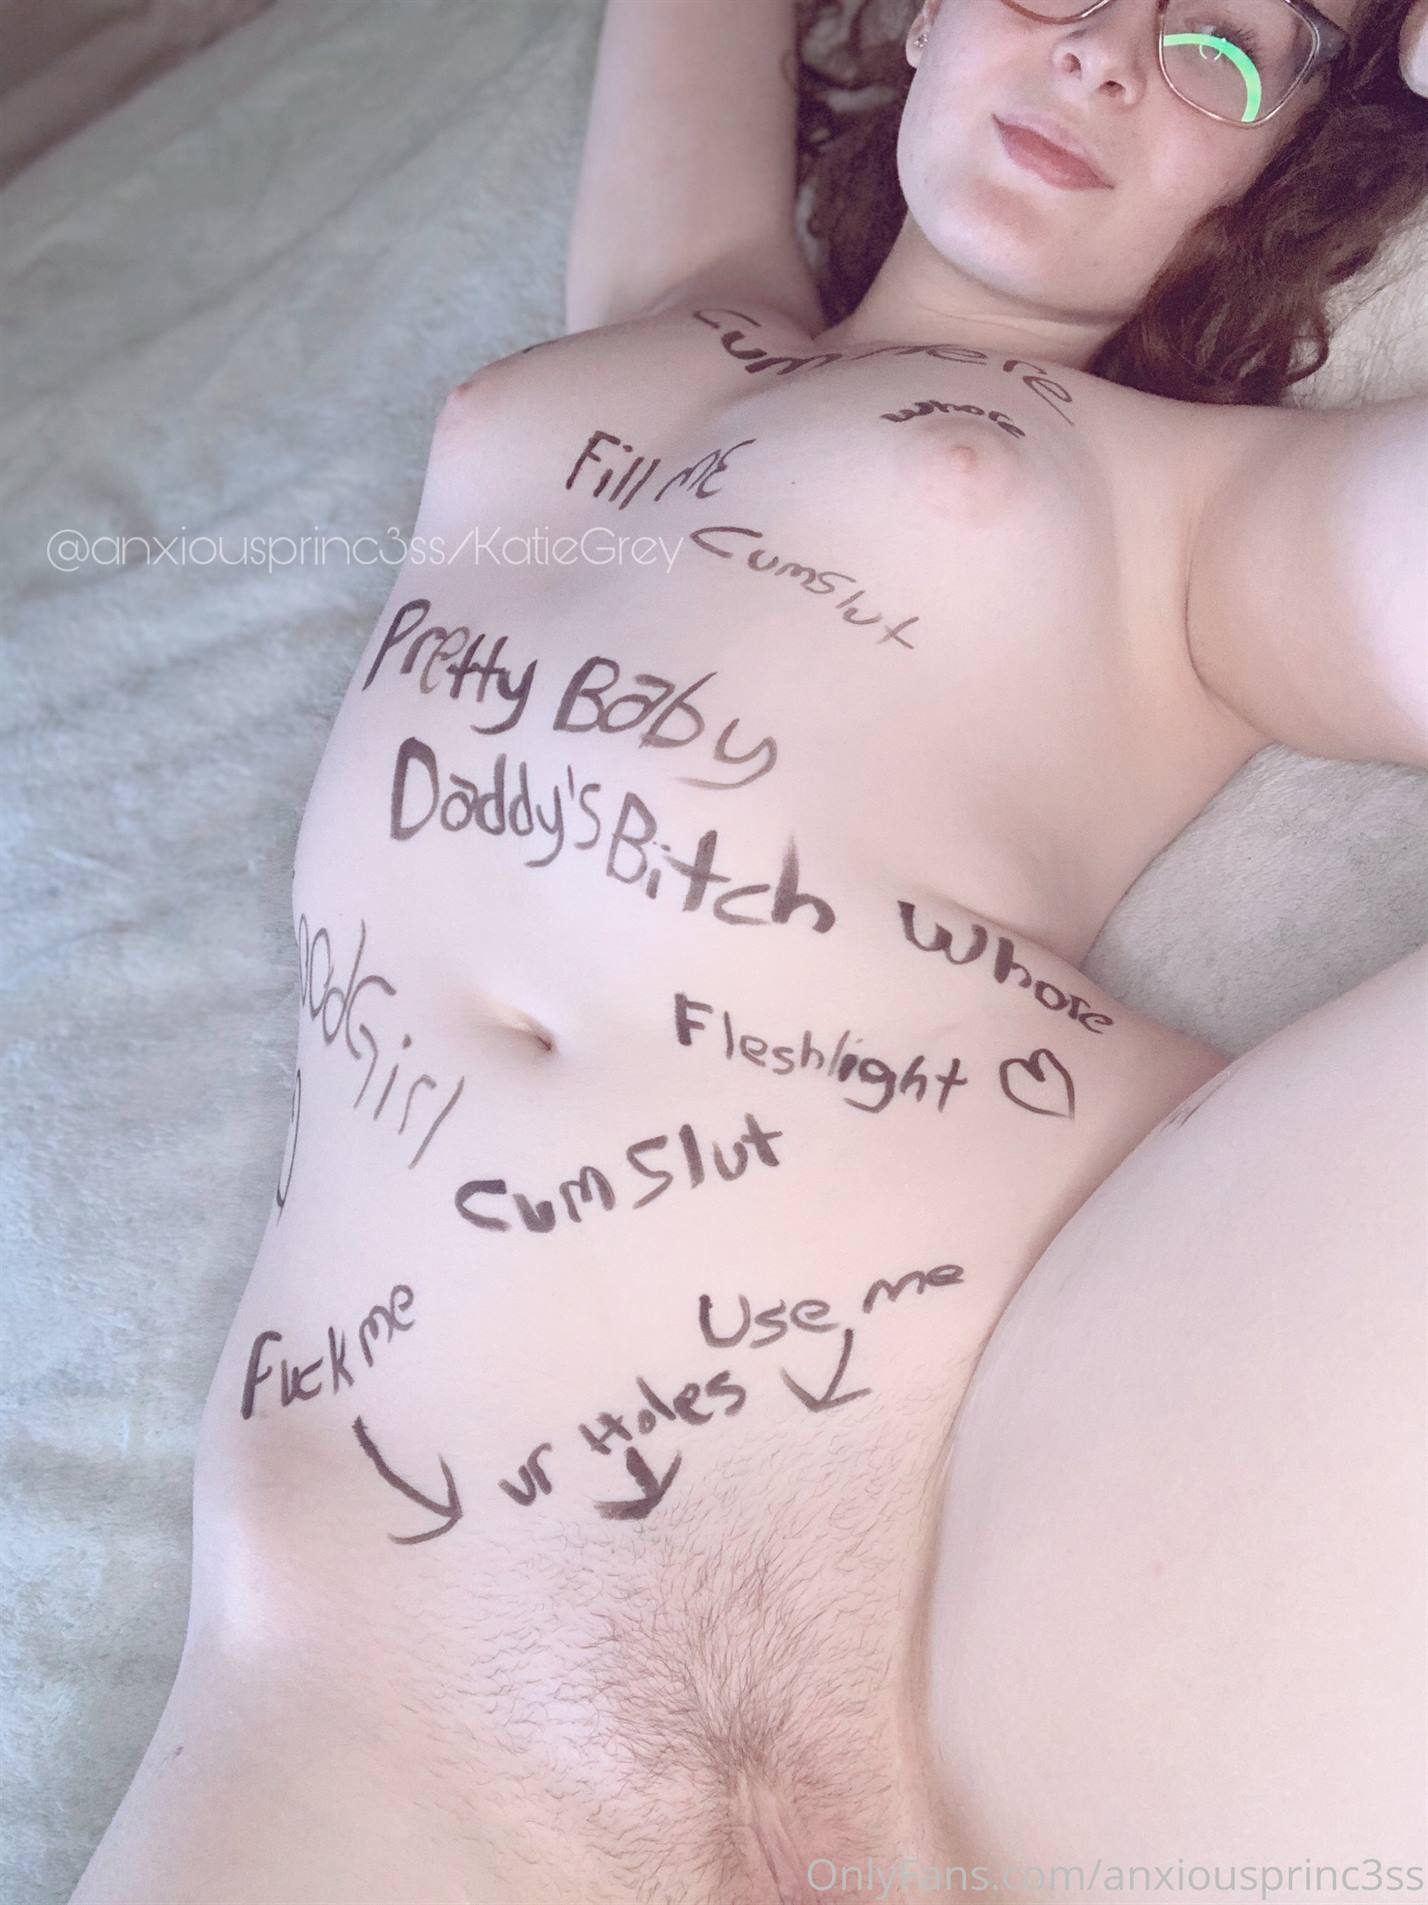 Cum Here
whore
Fill ME
Cumslut
@anxiousprinc3ss/KatieGrey
Pretty Baby
Daddy's Bitch
Whore
Girl
Fleshlight
Cum Slut
Use me
Fuck me
ur Holes
OnlyFans.com/anxiousprinc3ss